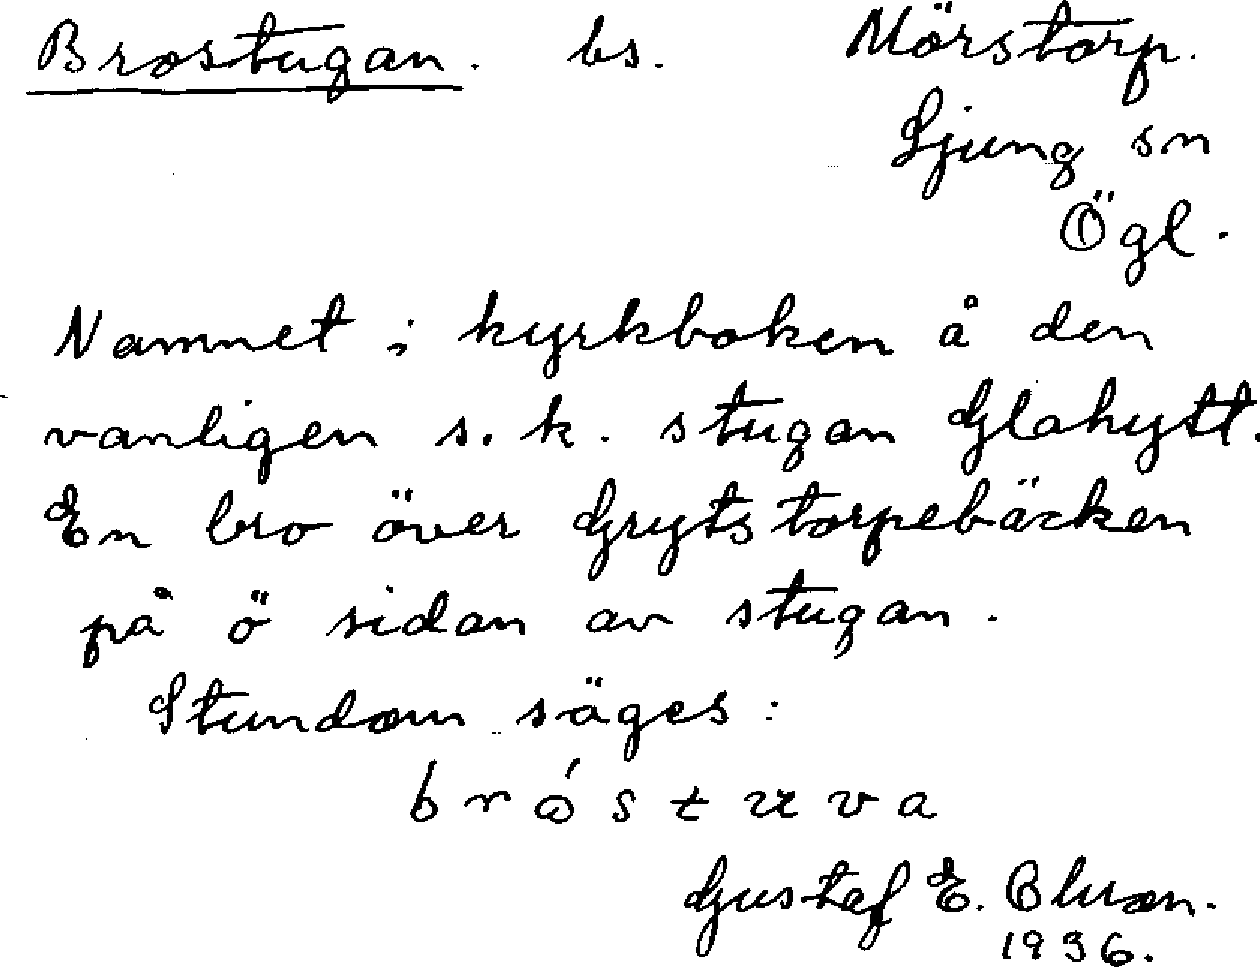 Brostugan. bs. Mörstorp.
Ljung sn
Ögl.
Namnet i kyrkboken å den
vanligen s.k. stugan Glahytt.
En bro över Grytstorpebäcken
på ö sidan av stugan.
Stundom säges:
bróstuva
Gustaf E. Bluom.
1936.